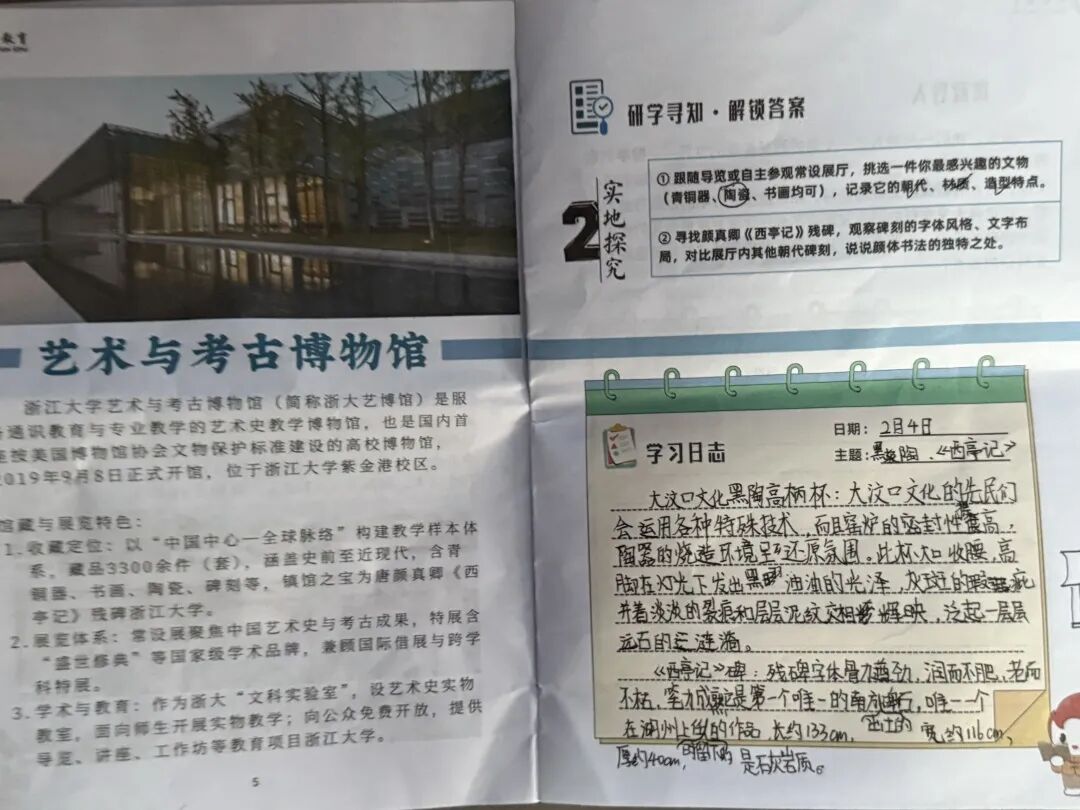 教育
艺术与考古博物馆
浙江大学艺术与考古博物馆（简称浙大艺博馆）是服
通识教育与专业教学的艺术史教学博物馆，也是国内首
按美国博物馆协会文物保护标准建设的高校博物馆，
2019年9月8日正式开馆，位于浙江大学紫金港校区。
馆藏与展览特色：
1. 收藏定位：以“中国中心—全球脉络”构建教学样本体
系，藏品3300余件（套），涵盖史前至近现代，含青
铜器、书画、陶瓷、碑刻等，镇馆之宝为唐颜真卿《西
亭记》残碑浙江大学。
2. 展览体系：常设展聚焦中国艺术史与考古成果，特展含
“盛世修典”等国家级学术品牌，兼顾国际借展与跨学
科特展。
3. 学术与教育：作为浙大“文科实验室”，设艺术史实物
教室，面向师生开展实物教学；向公众免费开放，提供
导览、讲座、工作坊等教育项目浙江大学。
5
研学寻知·解锁答案
2
实地探究
① 跟随导览或自主参观常设展厅，挑选一件你最感兴趣的文物
（青铜器、陶瓷、书画均可），记录它的朝代、材质、造型特点。
② 寻找颜真卿《西亭记》残碑，观察碑刻的字体风格、文字布
局，对比展厅内其他朝代碑刻，说说颜体书法的独特之处。
学习日志
日期：2月4日
主题：黑陶、《西亭记》
大汶口文化黑陶高柄杯：大汶口文化的先民们
会运用各种特殊技术，而且窑炉的密封性高，
陶器的烧造环境呈还原氛围。此杯收腰，高
脚在灯光下发出黑油油的光泽，灰斑的
着淡淡的裂痕和层层泥纹交相辉映，泛起一层层
远石的涟漪。
《西亭记》碑：残碑字体骨力遒劲，润而不肥，老而
不枯，笔力是第一个唯一的出土的石，唯一一个
在湖州上的留下的作品，长约133cm，宽约116cm，
厚约40cm，是石灰岩质。